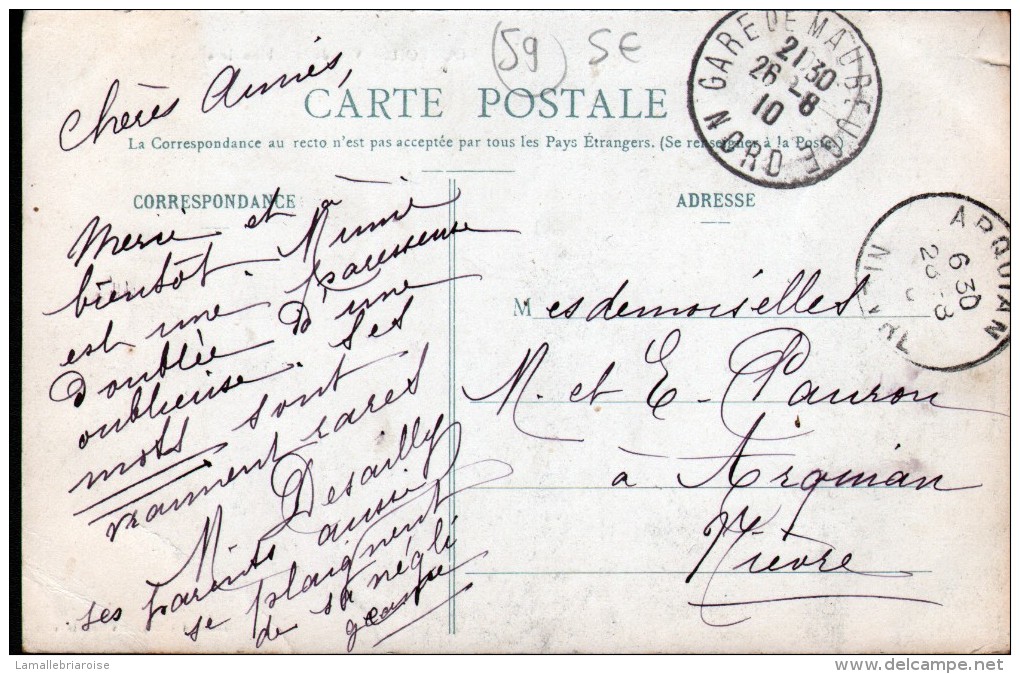 (59) SE
Chères Amies,
CARTE POSTALE
La Correspondance au recto n'est pas acceptée par tous les Pays Étrangers. (Se renseigner à la Poste)
GARE DE MAUBEUGE
21 30
26 - 8
10
NORD
CORRESPONDANCE
Merci et à
bientôt. Mimie
est une paresseuse
doublée d'une
oublieuse. Ses
mots sont
vraiment rares
M. Desailly
ses parents aussi
se plaignent
de sa négli
gence
ADRESSE
ARQUIAN
6 30
26 - 8
NIÈVRE
Mesdemoiselles
M. et E. Pauron
à Arquian
Nièvre
Lamallebriaroise
www.delcampe.net